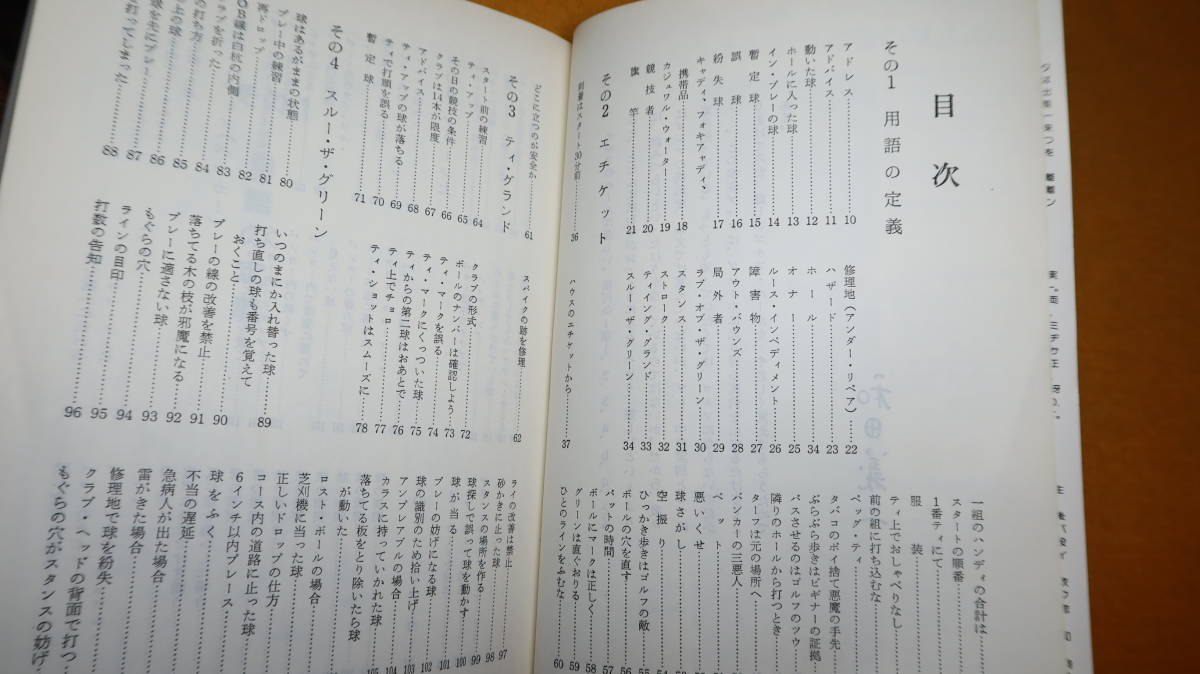 目次
その1 用語の定義
アドレス……10
アドバイス……11
動いた球……12
ホールに入った球……13
イン・プレーの球……14
暫定球……15
誤球……16
紛失球……17
キャディ、フォキャディ、
携帯品……18
カジュワル・ウォーター……19
競技者……20
旗竿……21
修理地(アンダー・リペア)……22
ハザード……23
ホール……34
オナー……25
ルース・インペディメント……26
障害物……27
アウト・バウンズ……28
局外者……29
ラブ・オブ・ザ・グリーン……30
スタンス……31
ストローク……32
ティイング・グランド……33
スルー・ザ・グリーン……34
その2 エチケット
到着はスタート30分前……36
ハウスのエチケットから……37
一組のハンディの合計は
スタートの順番
1番ティにて
服装
ティ上でおしゃべりなし
前の組に打ち込むな
ペッグ・ティ
タバコのポイ捨て悪魔の手先
ぶらぶら歩きはビギナーの証拠
パスさせるのはゴルフのツウ
隣りのホールから打つとき
ターフは元の場所へ
バンカーの三悪人
ベット
悪いくせ
球さがし
空振り
ひっかき歩きはゴルフの敵……55
ボールの穴を直す……56
パットの時間……57
ボールにマークは正しく……58
グリーンは直ぐおりる……59
ひとのラインをふむな……60
どこに立つのが安全か……61
スパイクの跡を修理……62
その3 ティ・グランド
スタート前の練習……64
ティ・アップ……65
その日の競技の条件……66
クラブは14本が限度……67
アドバイス……68
ティ・アップの球が落ちる……69
ティで打順を誤る……70
暫定球……71
クラブの形式……72
ボールのナンバーは確認しよう……73
ティ・マークを誤る……74
ティ・マークにくっついた球……75
ティからの第二球はおあとで……76
ティ上でチョロ……77
ティ・ショットはスムーズに……78
その4 スルー・ザ・グリーン
球はあるがままの状態……80
プレー中の練習……81
再ドロップ……82
OB線は白杭の内側……83
ラブを折った……84
の打ち方……85
上の球……86
球を先にプレー……87
打ってしまった……88
いつのまにか入れ替った球……89
打ち直しの球も番号を覚えて
おくこと……90
プレーの線の改善を禁止……91
落ちてる木の枝が邪魔になる……92
プレーに適さない球……93
もぐらの穴……94
ラインの目印……95
打数の告知……96
ライの改善は禁止……97
砂かきに止った球……98
スタンスの場所を作る……99
球探しで誤って球を動かす……100
球が当る……101
プレーの妨げになる球……102
球の識別のため拾い上げ……103
アンプレヤブルの場合……104
カラスに持っていかれた球……105
落ちてる板をとり除いたら球
が動いた
ロスト・ボールの場合
芝刈機に当った球
正しいドロップの仕方
コース内の道路に止った球
6インチ以内プレース
球をふく
不当の遅延
急病人が出た場合
雷がきた場合
修理地で球を紛失
クラブ・ヘッドの背面で打つ
もぐらの穴がスタンスの妨げ